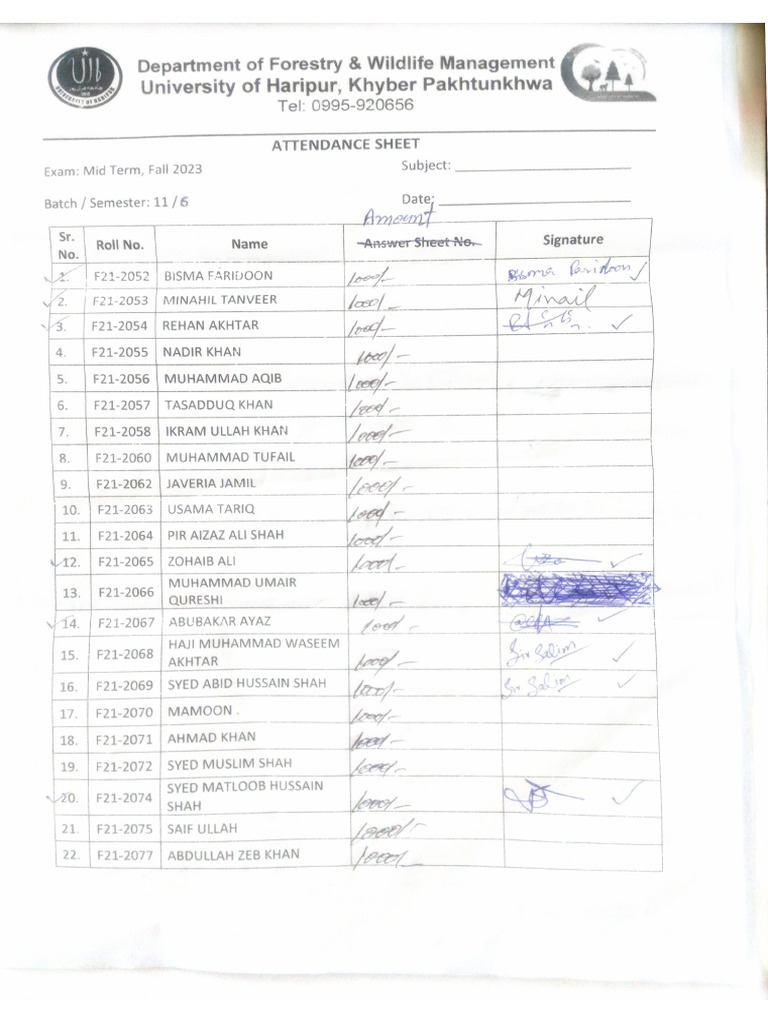 Department of Forestry & Wildlife Management
University of Haripur, Khyber Pakhtunkhwa
Tel: 0995-920656
ATTENDANCE SHEET
Exam: Mid Term, Fall 2023 Subject:
Batch / Semester: 11 / 6 Date:
Amount
Sr. No. Roll No. Name Answer Sheet No. Signature
1. F21-2052 BISMA FARIDOON 1000/- Bisma Faridoon
2. F21-2053 MINAHIL TANVEER 1000/- Minail
3. F21-2054 REHAN AKHTAR 1000/-
4. F21-2055 NADIR KHAN 1000/-
5. F21-2056 MUHAMMAD AQIB 1000/-
6. F21-2057 TASADDUQ KHAN 1000/-
7. F21-2058 IKRAM ULLAH KHAN 1000/-
8. F21-2060 MUHAMMAD TUFAIL 1000/-
9. F21-2062 JAVERIA JAMIL 1000/-
10. F21-2063 USAMA TARIQ 1000/-
11. F21-2064 PIR AIZAZ ALI SHAH 1000/-
12. F21-2065 ZOHAIB ALI 1000/-
13. F21-2066 MUHAMMAD UMAIR QURESHI 1000/-
14. F21-2067 ABUBAKAR AYAZ 1000/-
15. F21-2068 HAJI MUHAMMAD WASEEM AKHTAR 1000/- Sir Salim
16. F21-2069 SYED ABID HUSSAIN SHAH 1000/- Sir Salim
17. F21-2070 MAMOON . 1000/-
18. F21-2071 AHMAD KHAN 1000/-
19. F21-2072 SYED MUSLIM SHAH 1000/-
20. F21-2074 SYED MATLOOB HUSSAIN SHAH 1000/-
21. F21-2075 SAIF ULLAH 1000/-
22. F21-2077 ABDULLAH ZEB KHAN 1000/-